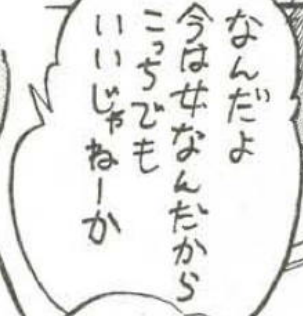 なんだよ
今は女なんだから
こっちでも
いいじゃねーか